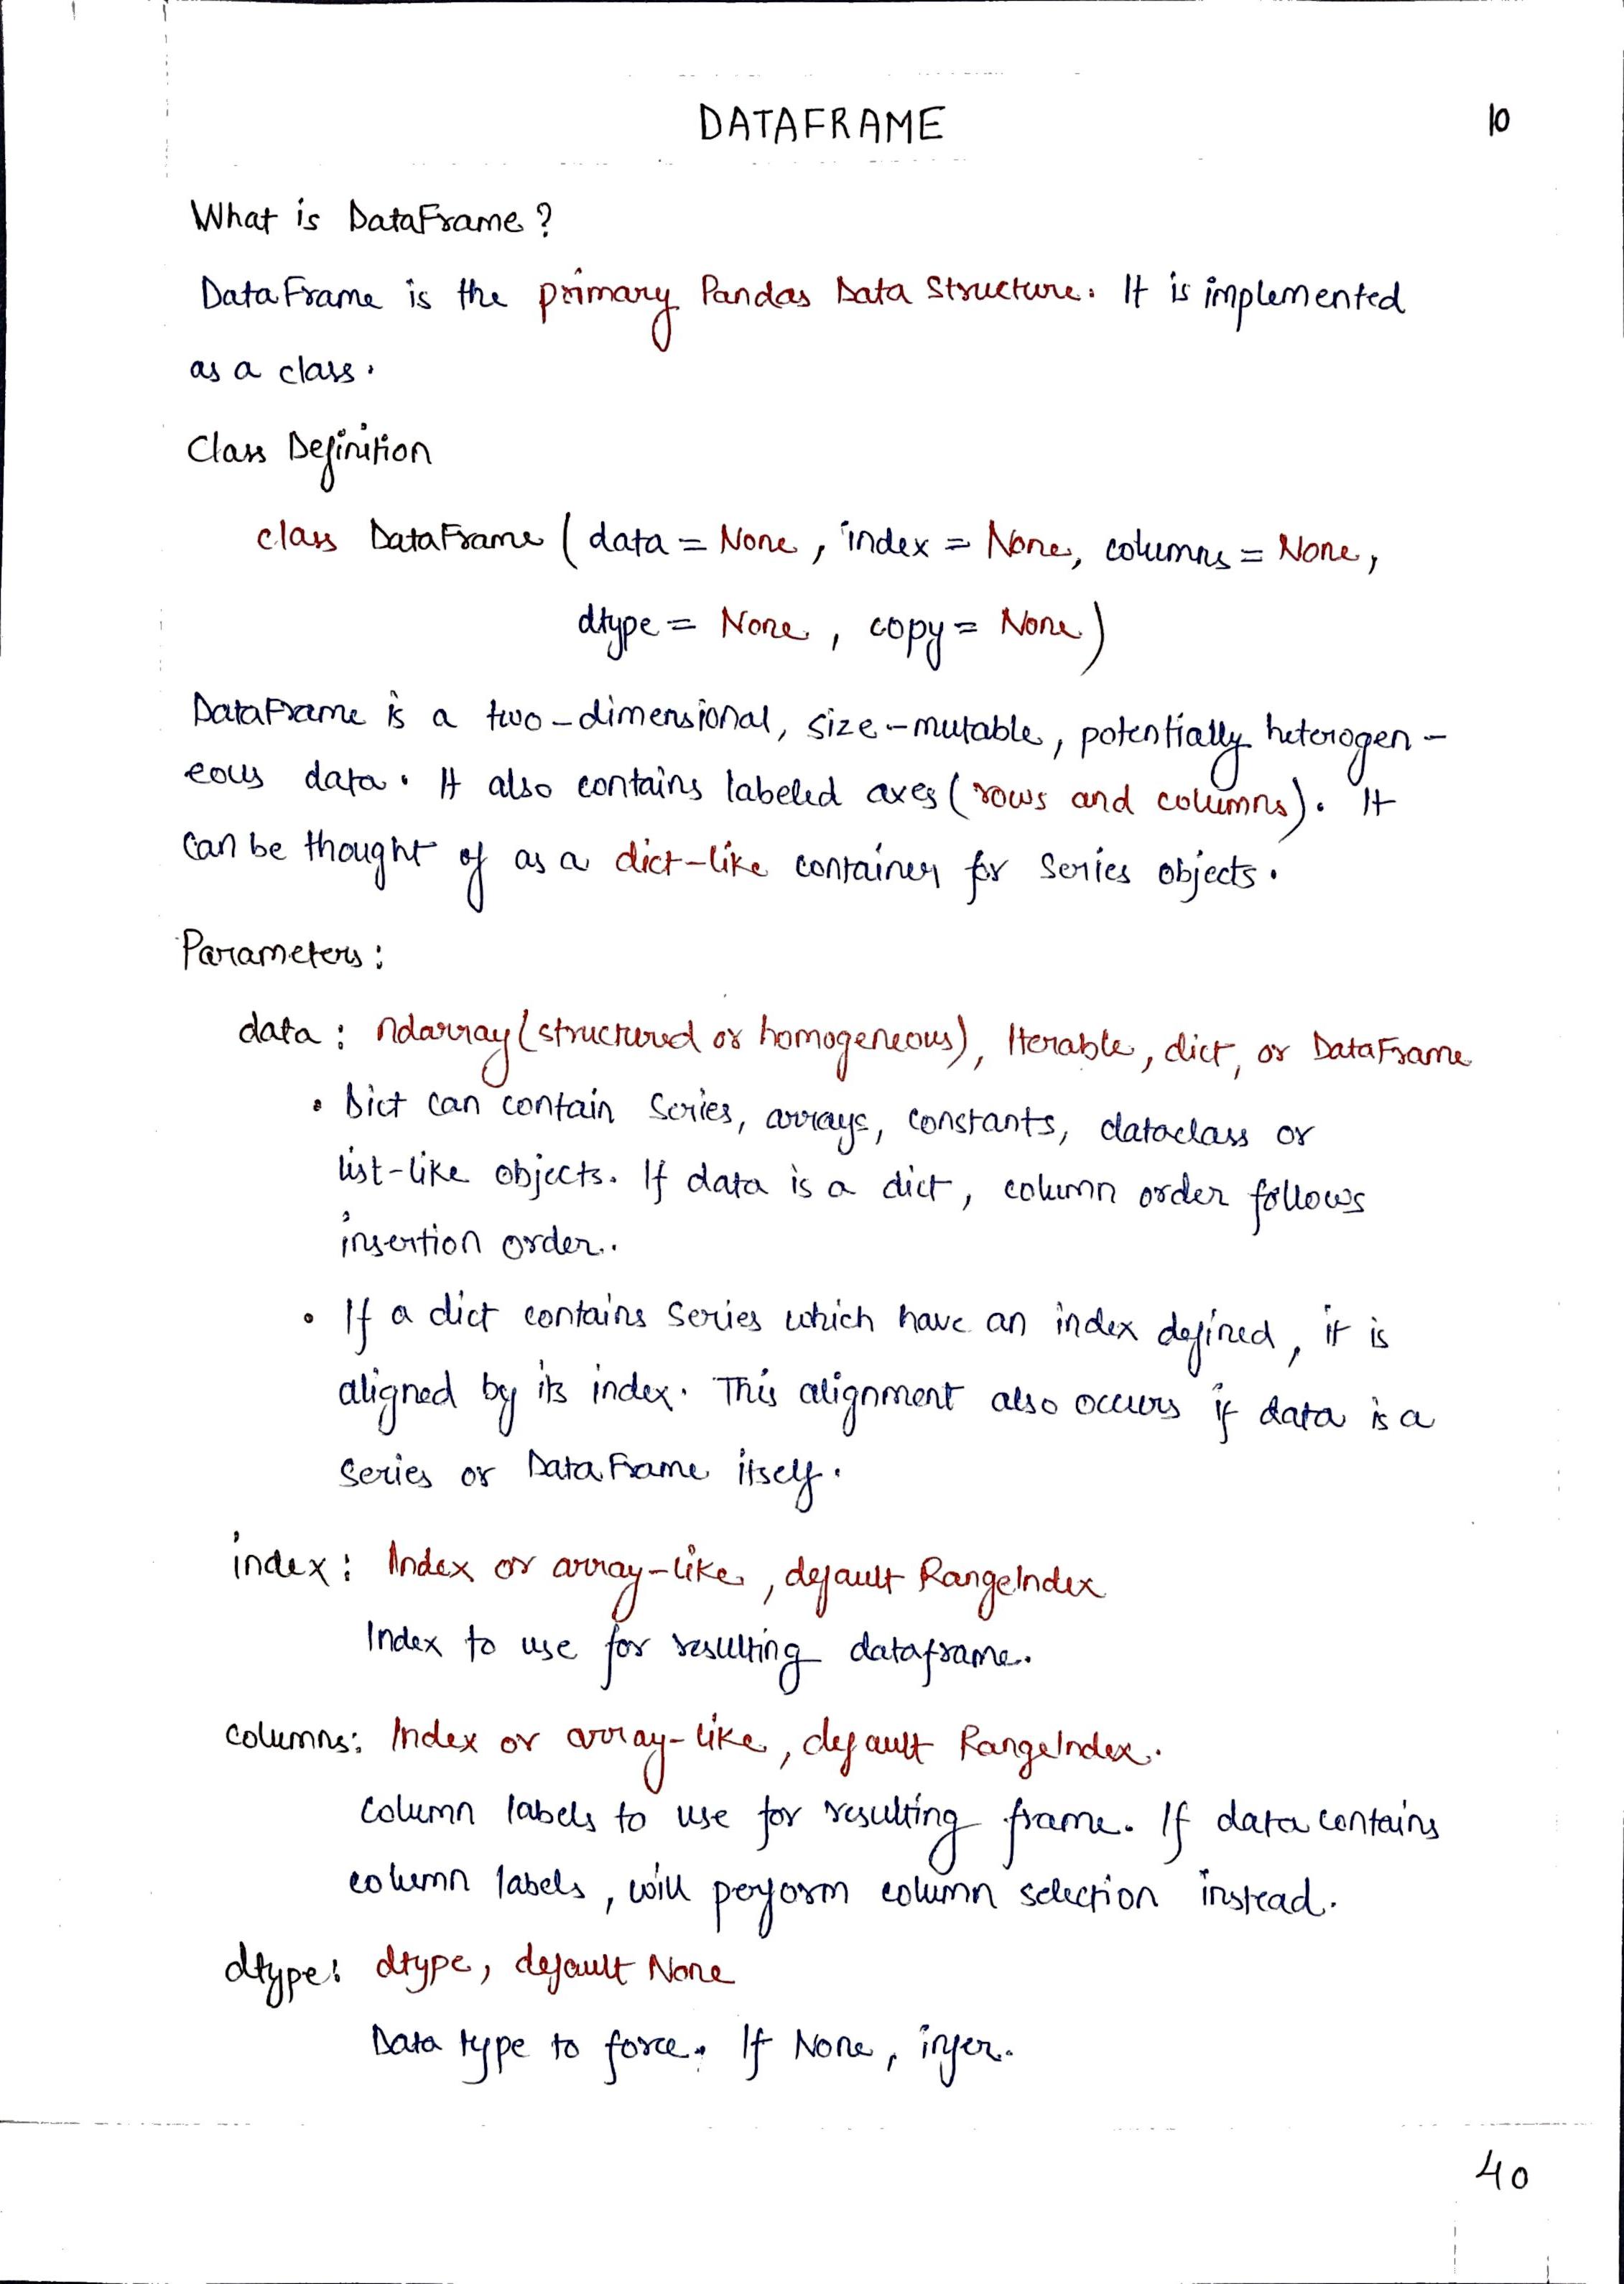 DATAFRAME
10
What is DataFrame?
DataFrame is the primary Pandas Data Structure. It is implemented
as a class.
Class Definition
class DataFrame (data = None, index = None, columns = None,
dtype = None, copy = None)
DataFrame is a two-dimensional, size-mutable, potentially heterogen-
eous data. It also contains labeled axes (rows and columns). It
can be thought of as a dict-like container for Series objects.
Parameters:
data: ndarray (structured or homogeneous), Iterable, dict, or DataFrame
• Dict can contain Series, arrays, constants, dataclass or
list-like objects. If data is a dict, column order follows
insertion order.
• If a dict contains Series which have an index defined, it is
aligned by its index. This alignment also occurs if data is a
Series or DataFrame itself.
index: Index or array-like, default RangeIndex
Index to use for resulting dataframe.
columns: Index or array-like, default RangeIndex.
Column labels to use for resulting frame. If data contains
column labels, will perform column selection instead.
dtype: dtype, default None
Data type to force. If None, infer.
40